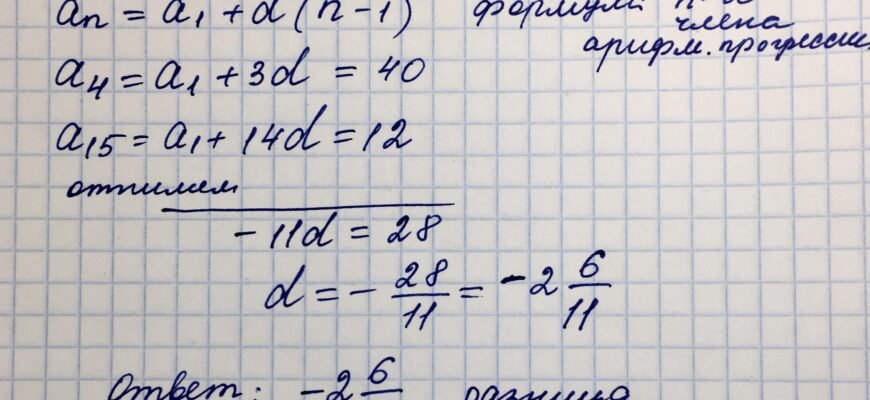 aₙ = a₁ + d(n-1) формула
члена
арифм. прогрессии
a₄ = a₁ + 3d = 40
a₁₅ = a₁ + 14d = 12
отнимем
-11d = 28
d = - 28/11 = -2 6/11
Ответ: -2 6 разница